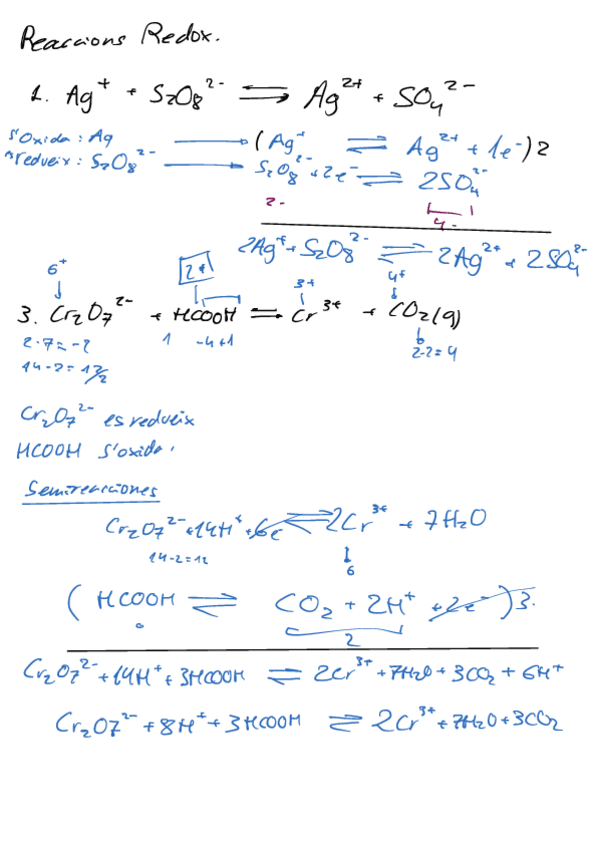 Reaccions Redox.
1. Ag⁺ + S₂O₈²⁻ ⇌ Ag²⁺ + SO₄²⁻
s'Oxida : Ag → (Ag⁺ ⇌ Ag²⁺ + 1e⁻) 2
redueix : S₂O₈²⁻ → S₂O₈²⁻ + 2e⁻ ⇌ 2SO₄²⁻
2- 4-
2Ag⁺ + S₂O₈²⁻ ⇌ 2Ag²⁺ + 2SO₄²⁻
6⁺ 2+ 3+ 4+
3. Cr₂O₇²⁻ + HCOOH ⇌ Cr³⁺ + CO₂(g)
2·7=-2 1 -4+1 2·2=4
14-2=12/2
Cr₂O₇²⁻ es redueix
HCOOH s'oxida.
Semireacciones
Cr₂O₇²⁻ + 14H⁺ + 6e⁻ ⇌ 2Cr³⁺ + 7H₂O
14-2=12 6
(HCOOH ⇌ CO₂ + 2H⁺ + 2e⁻) 3.
0 2
Cr₂O₇²⁻ + 14H⁺ + 3HCOOH ⇌ 2Cr³⁺ + 7H₂O + 3CO₂ + 6H⁺
Cr₂O₇²⁻ + 8H⁺ + 3HCOOH ⇌ 2Cr³⁺ + 7H₂O + 3CO₂